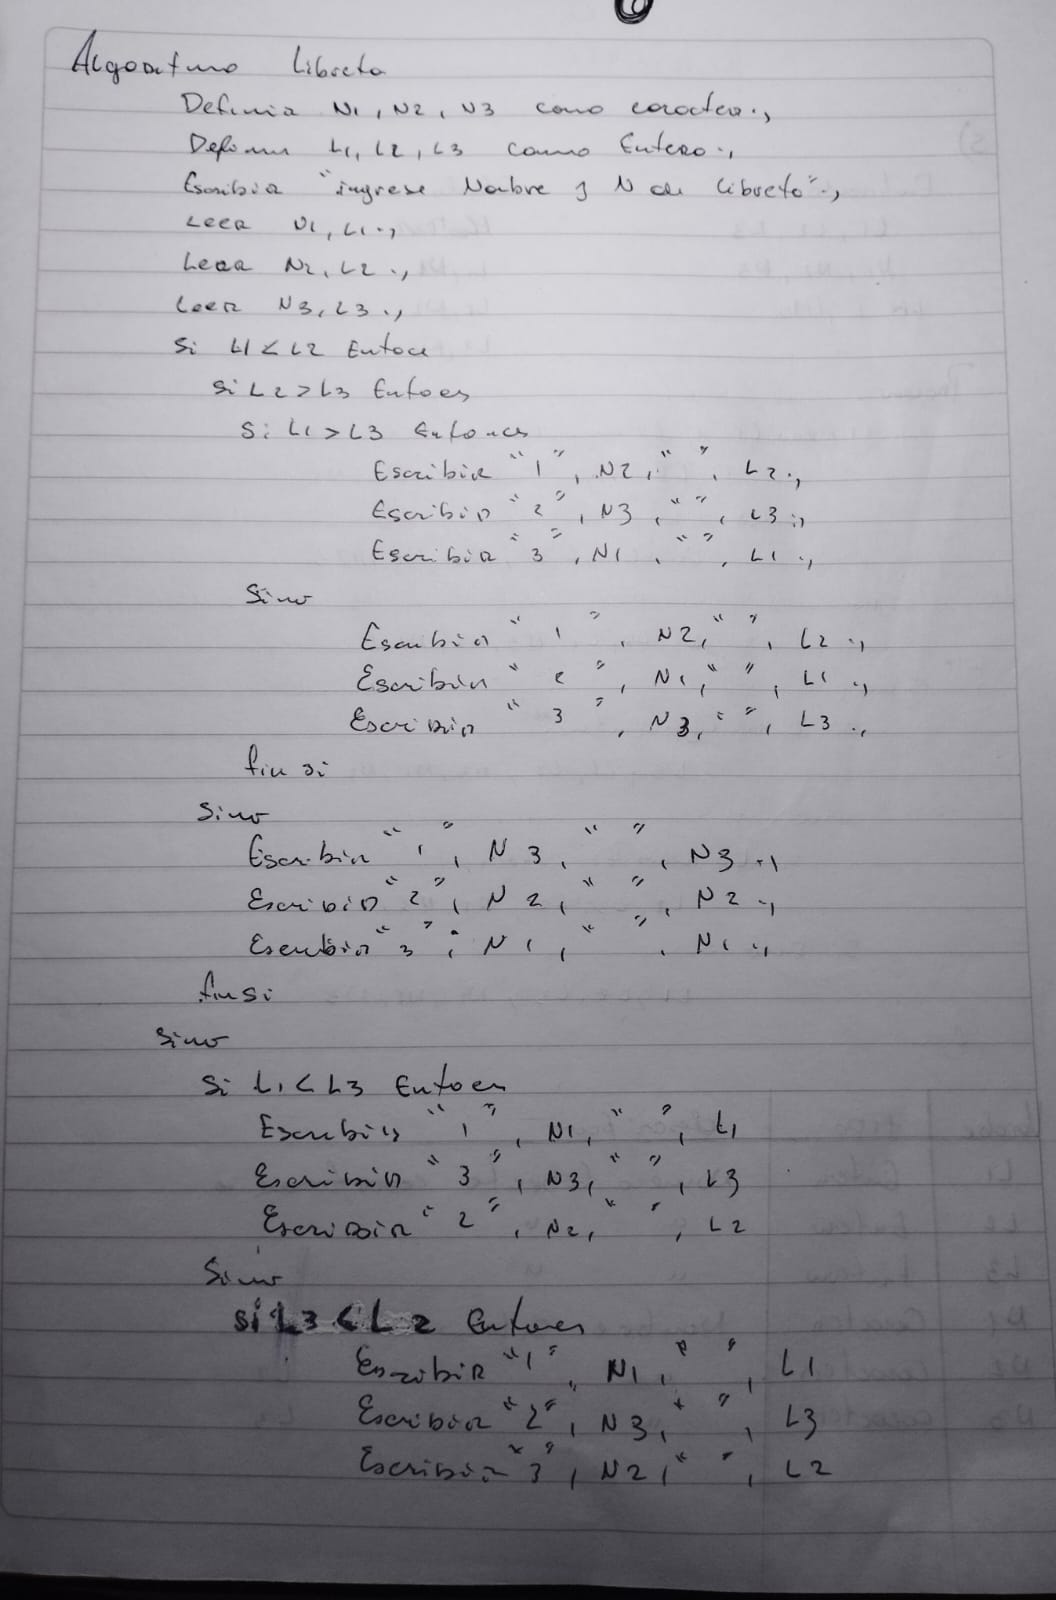 Algoritmo Libreta
Definir N1, N2, N3 como caracter.,
Definir L1, L2, L3 como Entero.,
Escribir "ingrese Nombre y N de libreta".,
Leer N1, L1.,
Leer N2, L2.,
Leer N3, L3.,
Si L1 < L2 Entoce
Si L2 > L3 Entoes
Si L1 > L3 Entonces
Escribir "1", N2, " ", L2.,
Escribir "2", N3, " ", L3.,
Escribir "3", N1, " ", L1.,
Sino
Escribir "1", N2, " ", L2.,
Escribir "2", N1, " ", L1.,
Escribir "3", N3, " ", L3.,
fin si
Sino
Escribir "1", N3, " ", N3.,
Escribir "2", N2, " ", N2.,
Escribir "3", N1, " ", N1.,
fin si
Sino
Si L1 < L3 Entoen
Escribir "1", N1, " ", L1
Escribir "3", N3, " ", L3
Escribir "2", N2, " ", L2
Sino
Si L3 < L2 Entonces
Escribir "1", N1, " ", L1
Escribir "2", N3, " ", L3
Escribir "3", N2, " ", L2